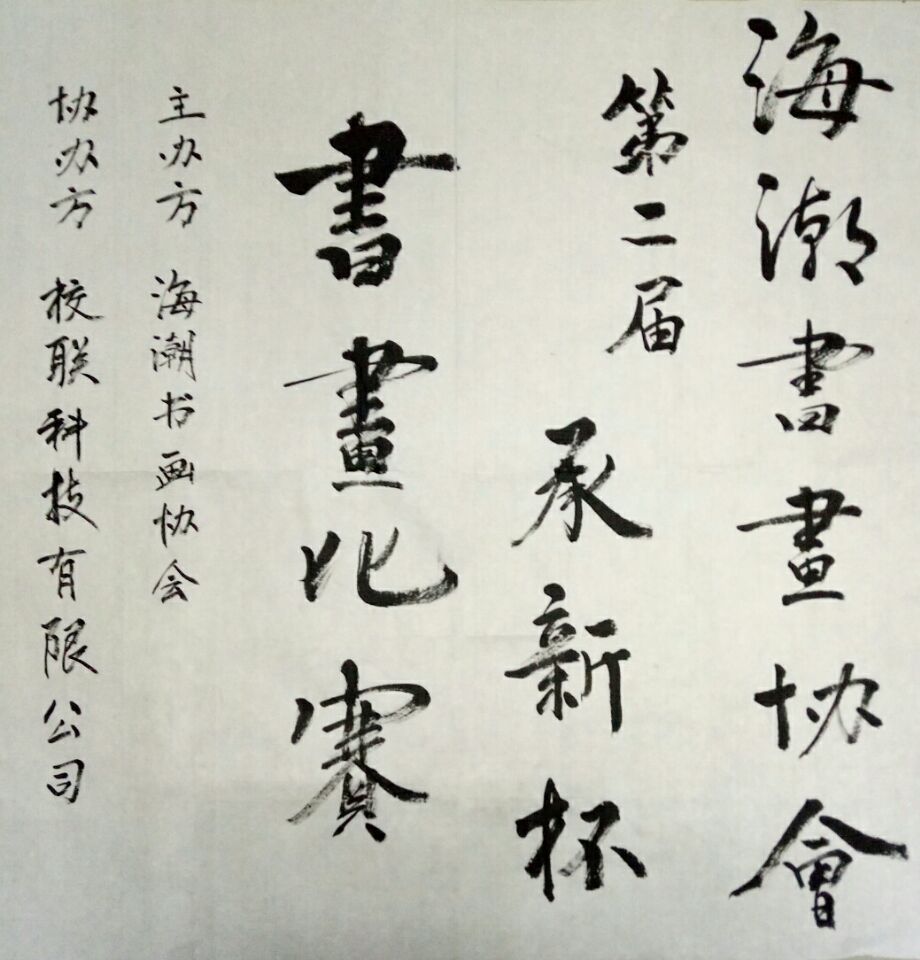 海潮書畫协會
第二届
承新杯
書畫比賽
主办方 海潮书画协会
协办方 校联科技有限公司